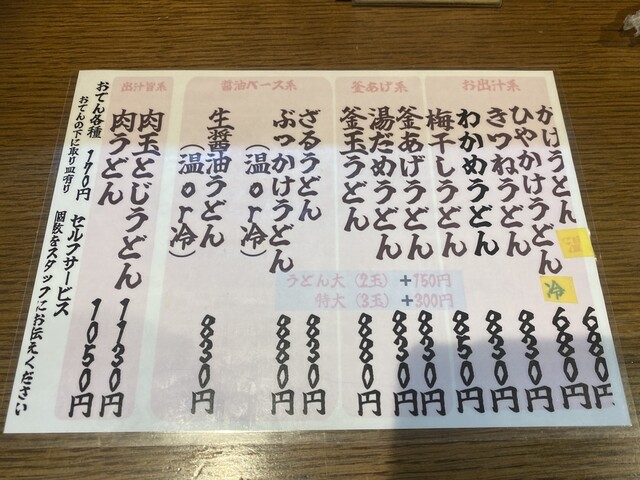 お出汁系
かけうどん 温 680円
ひやかけうどん 冷 680円
きつねうどん 830円
わかめうどん 830円
梅干しうどん 850円
釜あげ系
釜あげうどん 830円
湯だめうどん 830円
釜玉うどん 880円
うどん大(2玉)+150円
特大(3玉)+300円
醤油ベース系
ざるうどん 830円
ぶっかけうどん 880円
(温or冷)
生醤油うどん 830円
(温or冷)
出汁旨系
肉玉とじうどん 1130円
肉うどん 1050円
おでん各種 170円 セルフサービス
おでんの下に取り皿有り 個数をスタッフにお伝えください